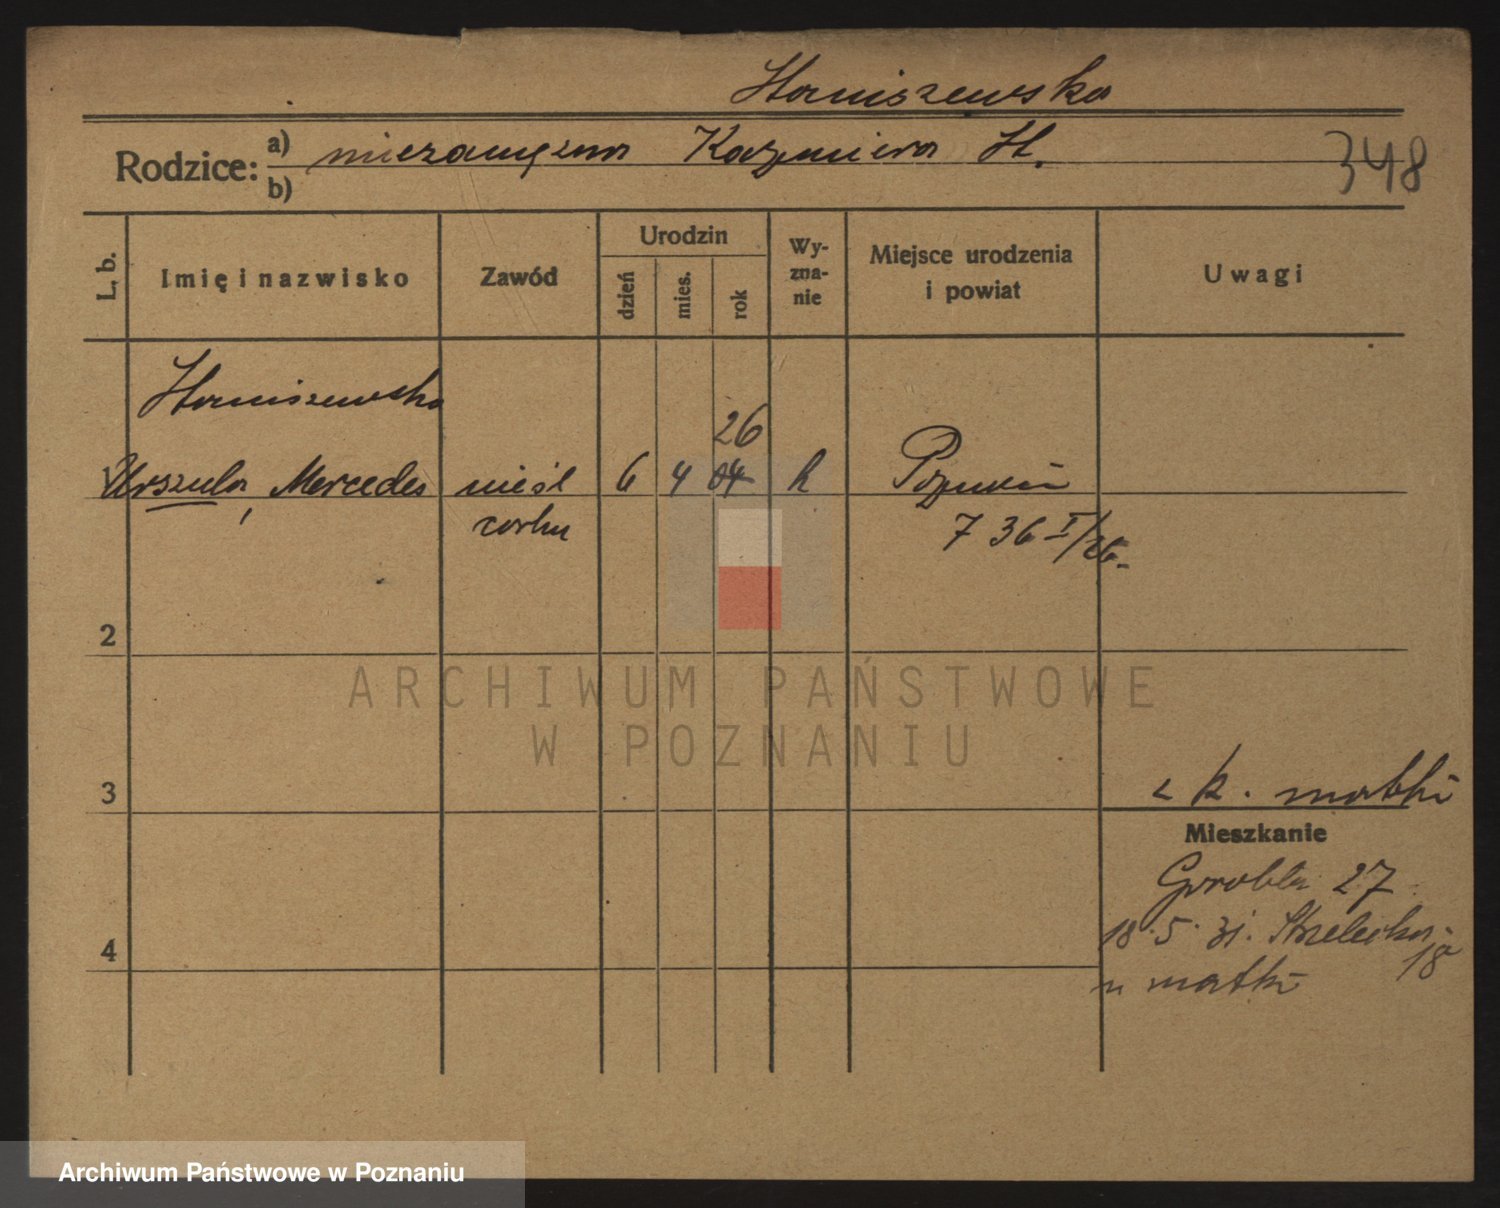 Staniszewska
Rodzice: a) niezamężna Kazimiera St.
b)
348
L. b.
Imię i nazwisko
Zawód
Urodzin
dzień
mies.
rok
Wy-
zna-
nie
Miejsce urodzenia
i powiat
Uwagi
Staniszewska
26
1 Urszula, Mercedes nieśl 6 4 04 k Poznań
córka 7 36 I/26.
2
ARCHIWUM PAŃSTWOWE
W POZNANIU
3
k. matki
Mieszkanie
Grobla 27
18.5.31. Strzelecka
18
u matki
4
Archiwum Państwowe w Poznaniu